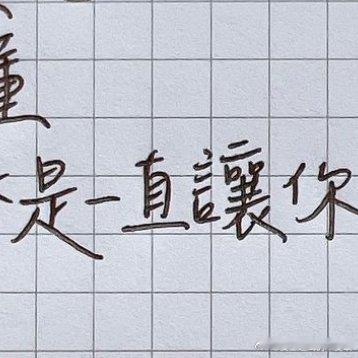 是一直讓你